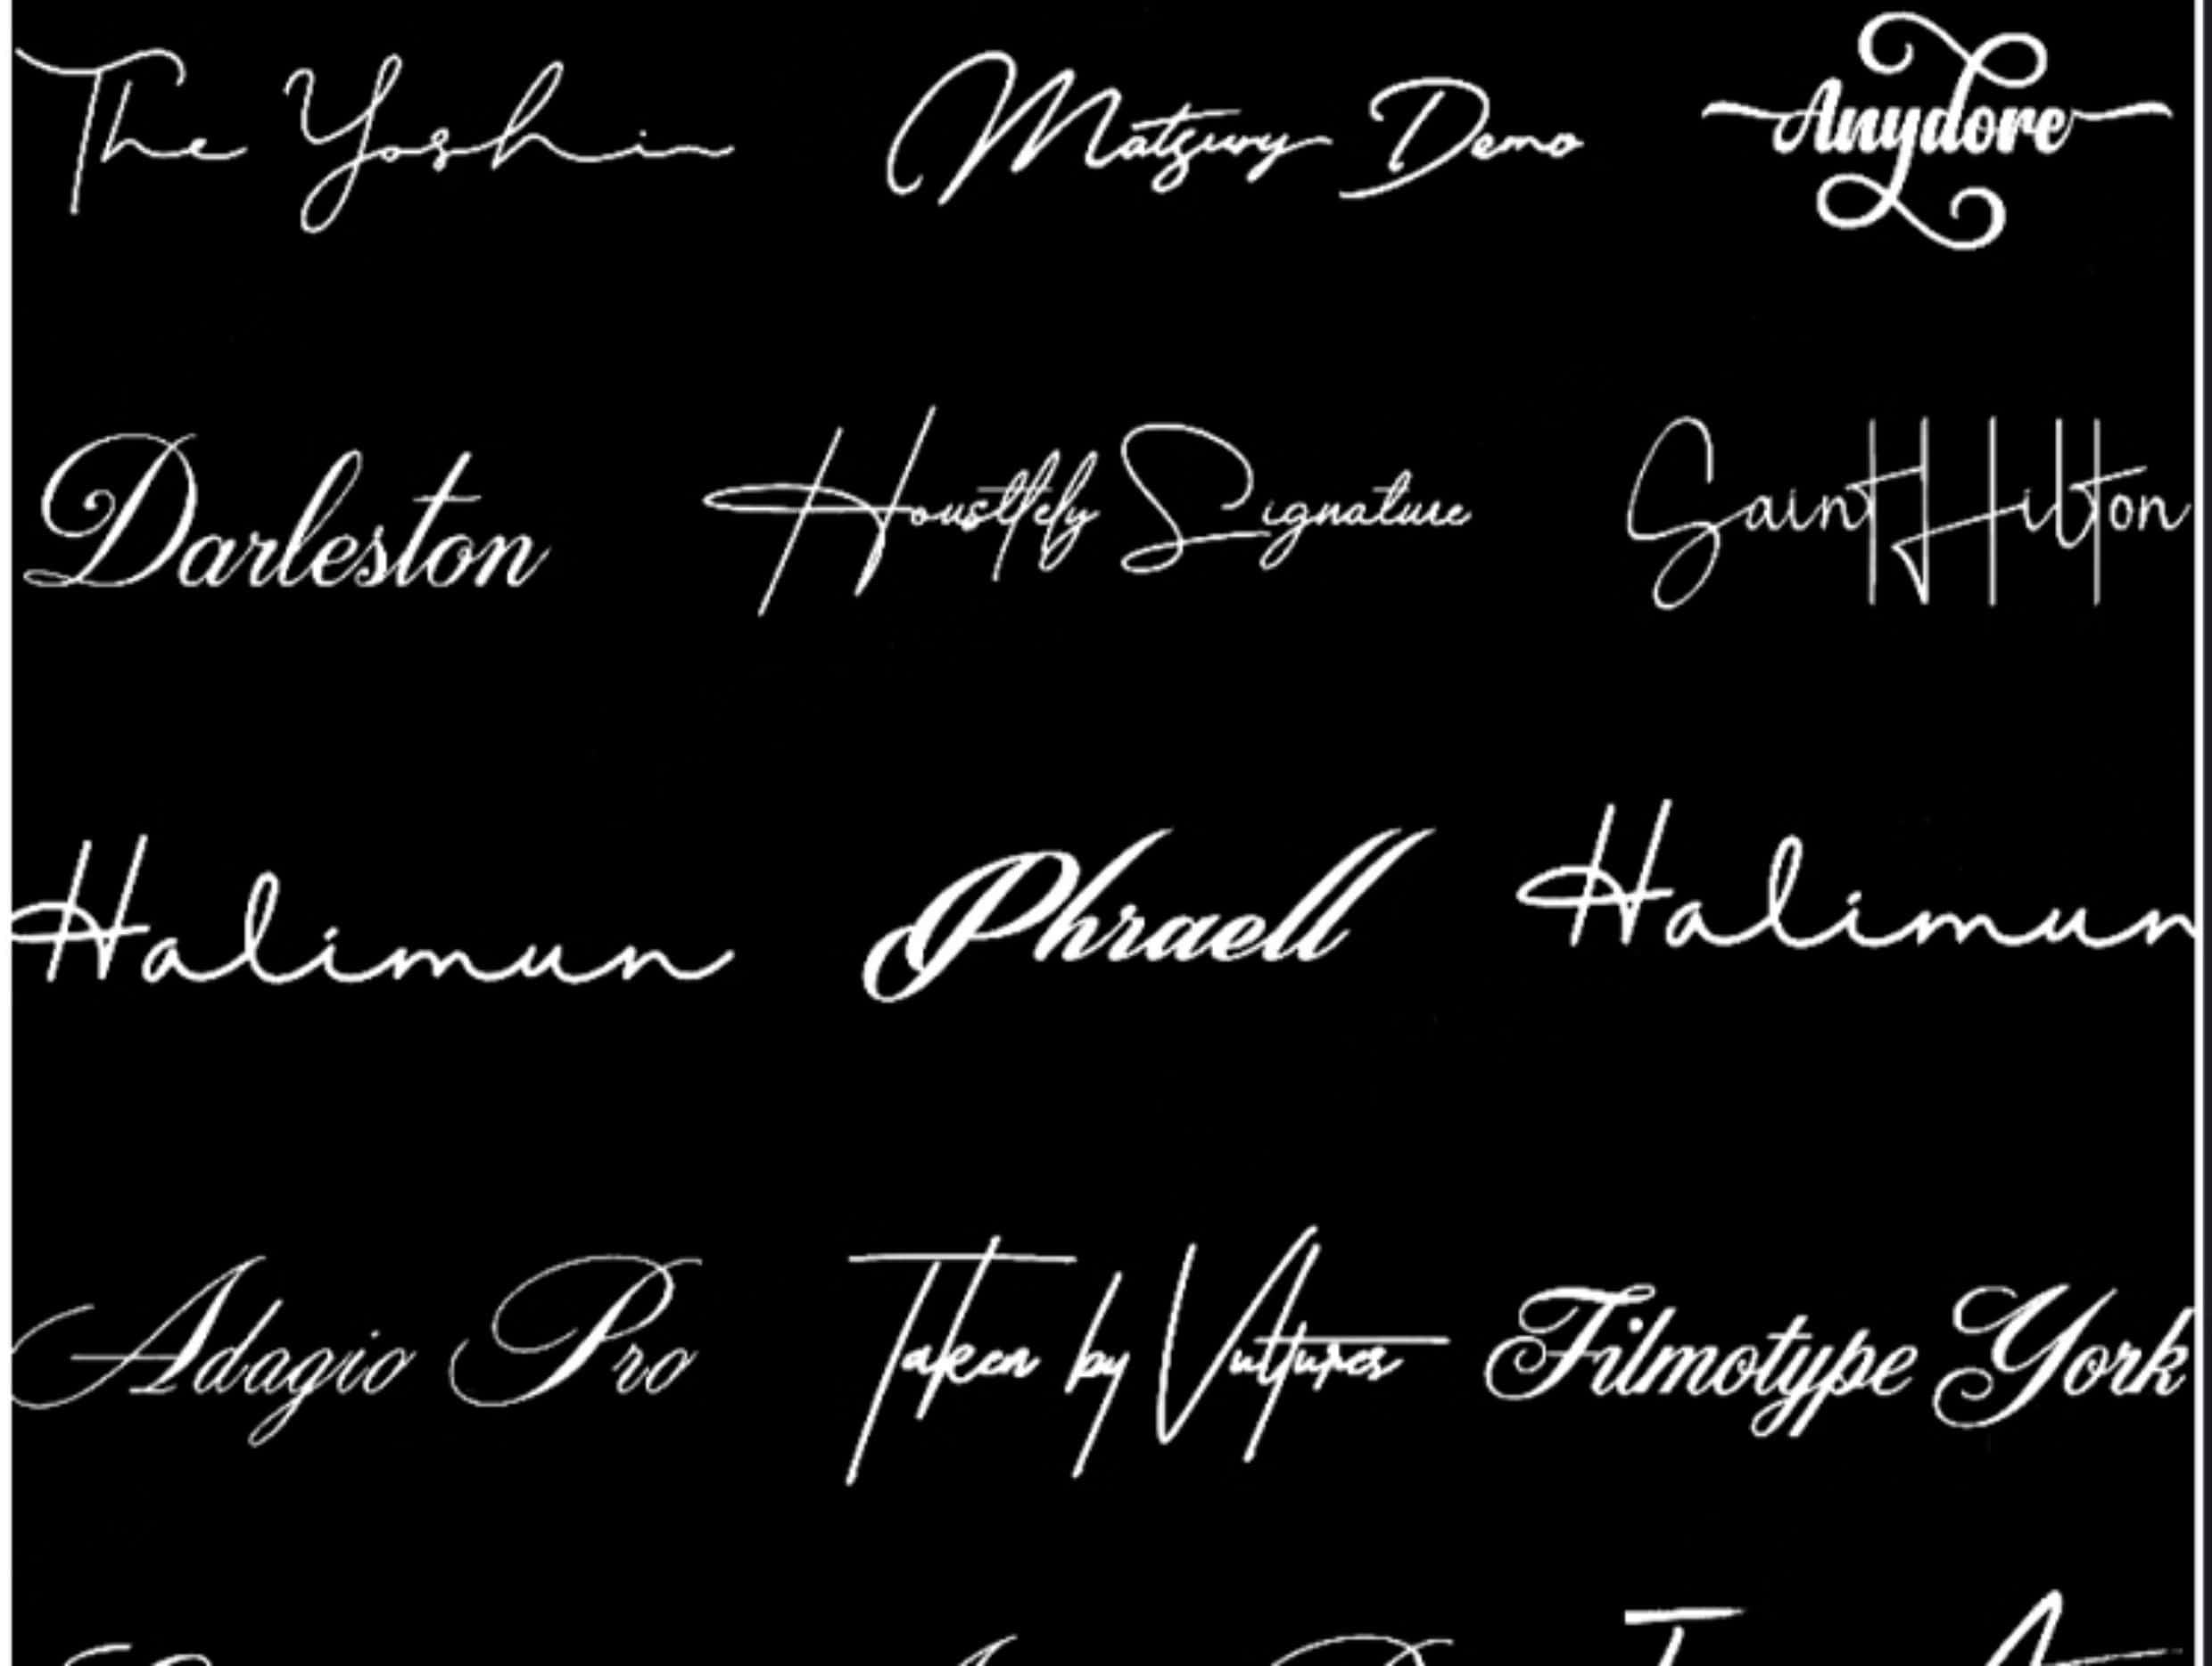 The Yoshi Matsury Demo Anydore
Darleston Housttely Signature Saint Hilton
Halimun Phraell Halimun
Adagio Pro Taken by Vultures Filmotype York